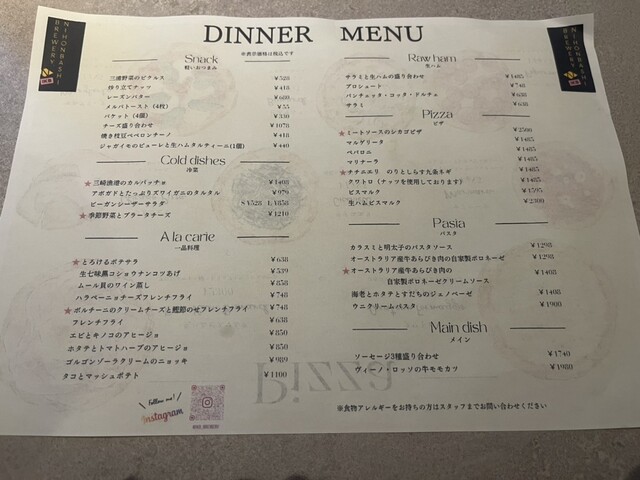 NIHONBASHI
BREWERY.
DINNER MENU
※表示価格は税込です
Snack
軽いおつまみ
三浦野菜のピクルス ¥528
炒り立てナッツ ¥418
レーズンバター ¥680
メルバトースト(4枚) ¥55
バケット(4個) ¥330
チーズ盛り合わせ ¥1078
焼き枝豆ペペロンチーノ ¥418
ジャガイモのピューレと生ハムタルティーニ(1個) ¥440
Cold dishes
冷菜
★三崎漁港のカルパッチョ ¥1408
アボガドとたっぷりズワイガニのタルタル ¥979
ビーガンシーザーサラダ S¥528 L¥858
★季節野菜とブラータチーズ ¥1210
A la carte
一品料理
★とろけるポテサラ ¥638
生七味黒コショウナンコツあげ ¥539
ムール貝のワイン蒸し ¥858
ハラペーニョチーズフレンチフライ ¥748
★ポルチーニのクリームチーズと鰹節のせフレンチフライ ¥748
フレンチフライ ¥638
エビとキノコのアヒージョ ¥850
ホタテとトマトハーブのアヒージョ ¥850
ゴルゴンゾーラクリームのニョッキ ¥989
タコとマッシュポテト ¥1100
Follow me!
Instagram
Raw ham
生ハム
サラミと生ハムの盛り合わせ ¥1485
プロシュート ¥748
パンチェッタ・コッタ・ドルチェ ¥638
サラミ ¥638
Pizza
ピザ
★ミートソースのシカゴピザ ¥2500
マルゲリータ ¥1485
ペパロニ ¥1485
マリナーラ ¥1485
★チチニエリ のりとしらす九条ネギ ¥1485
クワトロ(ナッツを使用しております) ¥1485
ビスマルク ¥1595
生ハムビスマルク ¥2300
Pasta
パスタ
カラスミと明太子のパスタソース ¥1298
オーストラリア産牛あらびき肉の自家製ボロネーゼ ¥1298
★オーストラリア産牛あらびき肉の
自家製ボロネーゼクリームソース ¥1408
海老とホタテとすだちのジェノベーゼ ¥1408
ウニクリームパスタ ¥1900
Main dish
メイン
ソーセージ3種盛り合わせ ¥1740
ヴィーノ・ロッソの牛モモカツ ¥1980
※食物アレルギーをお持ちの方はスタッフまでお問い合わせください
NIHONBASHI
BREWERY.